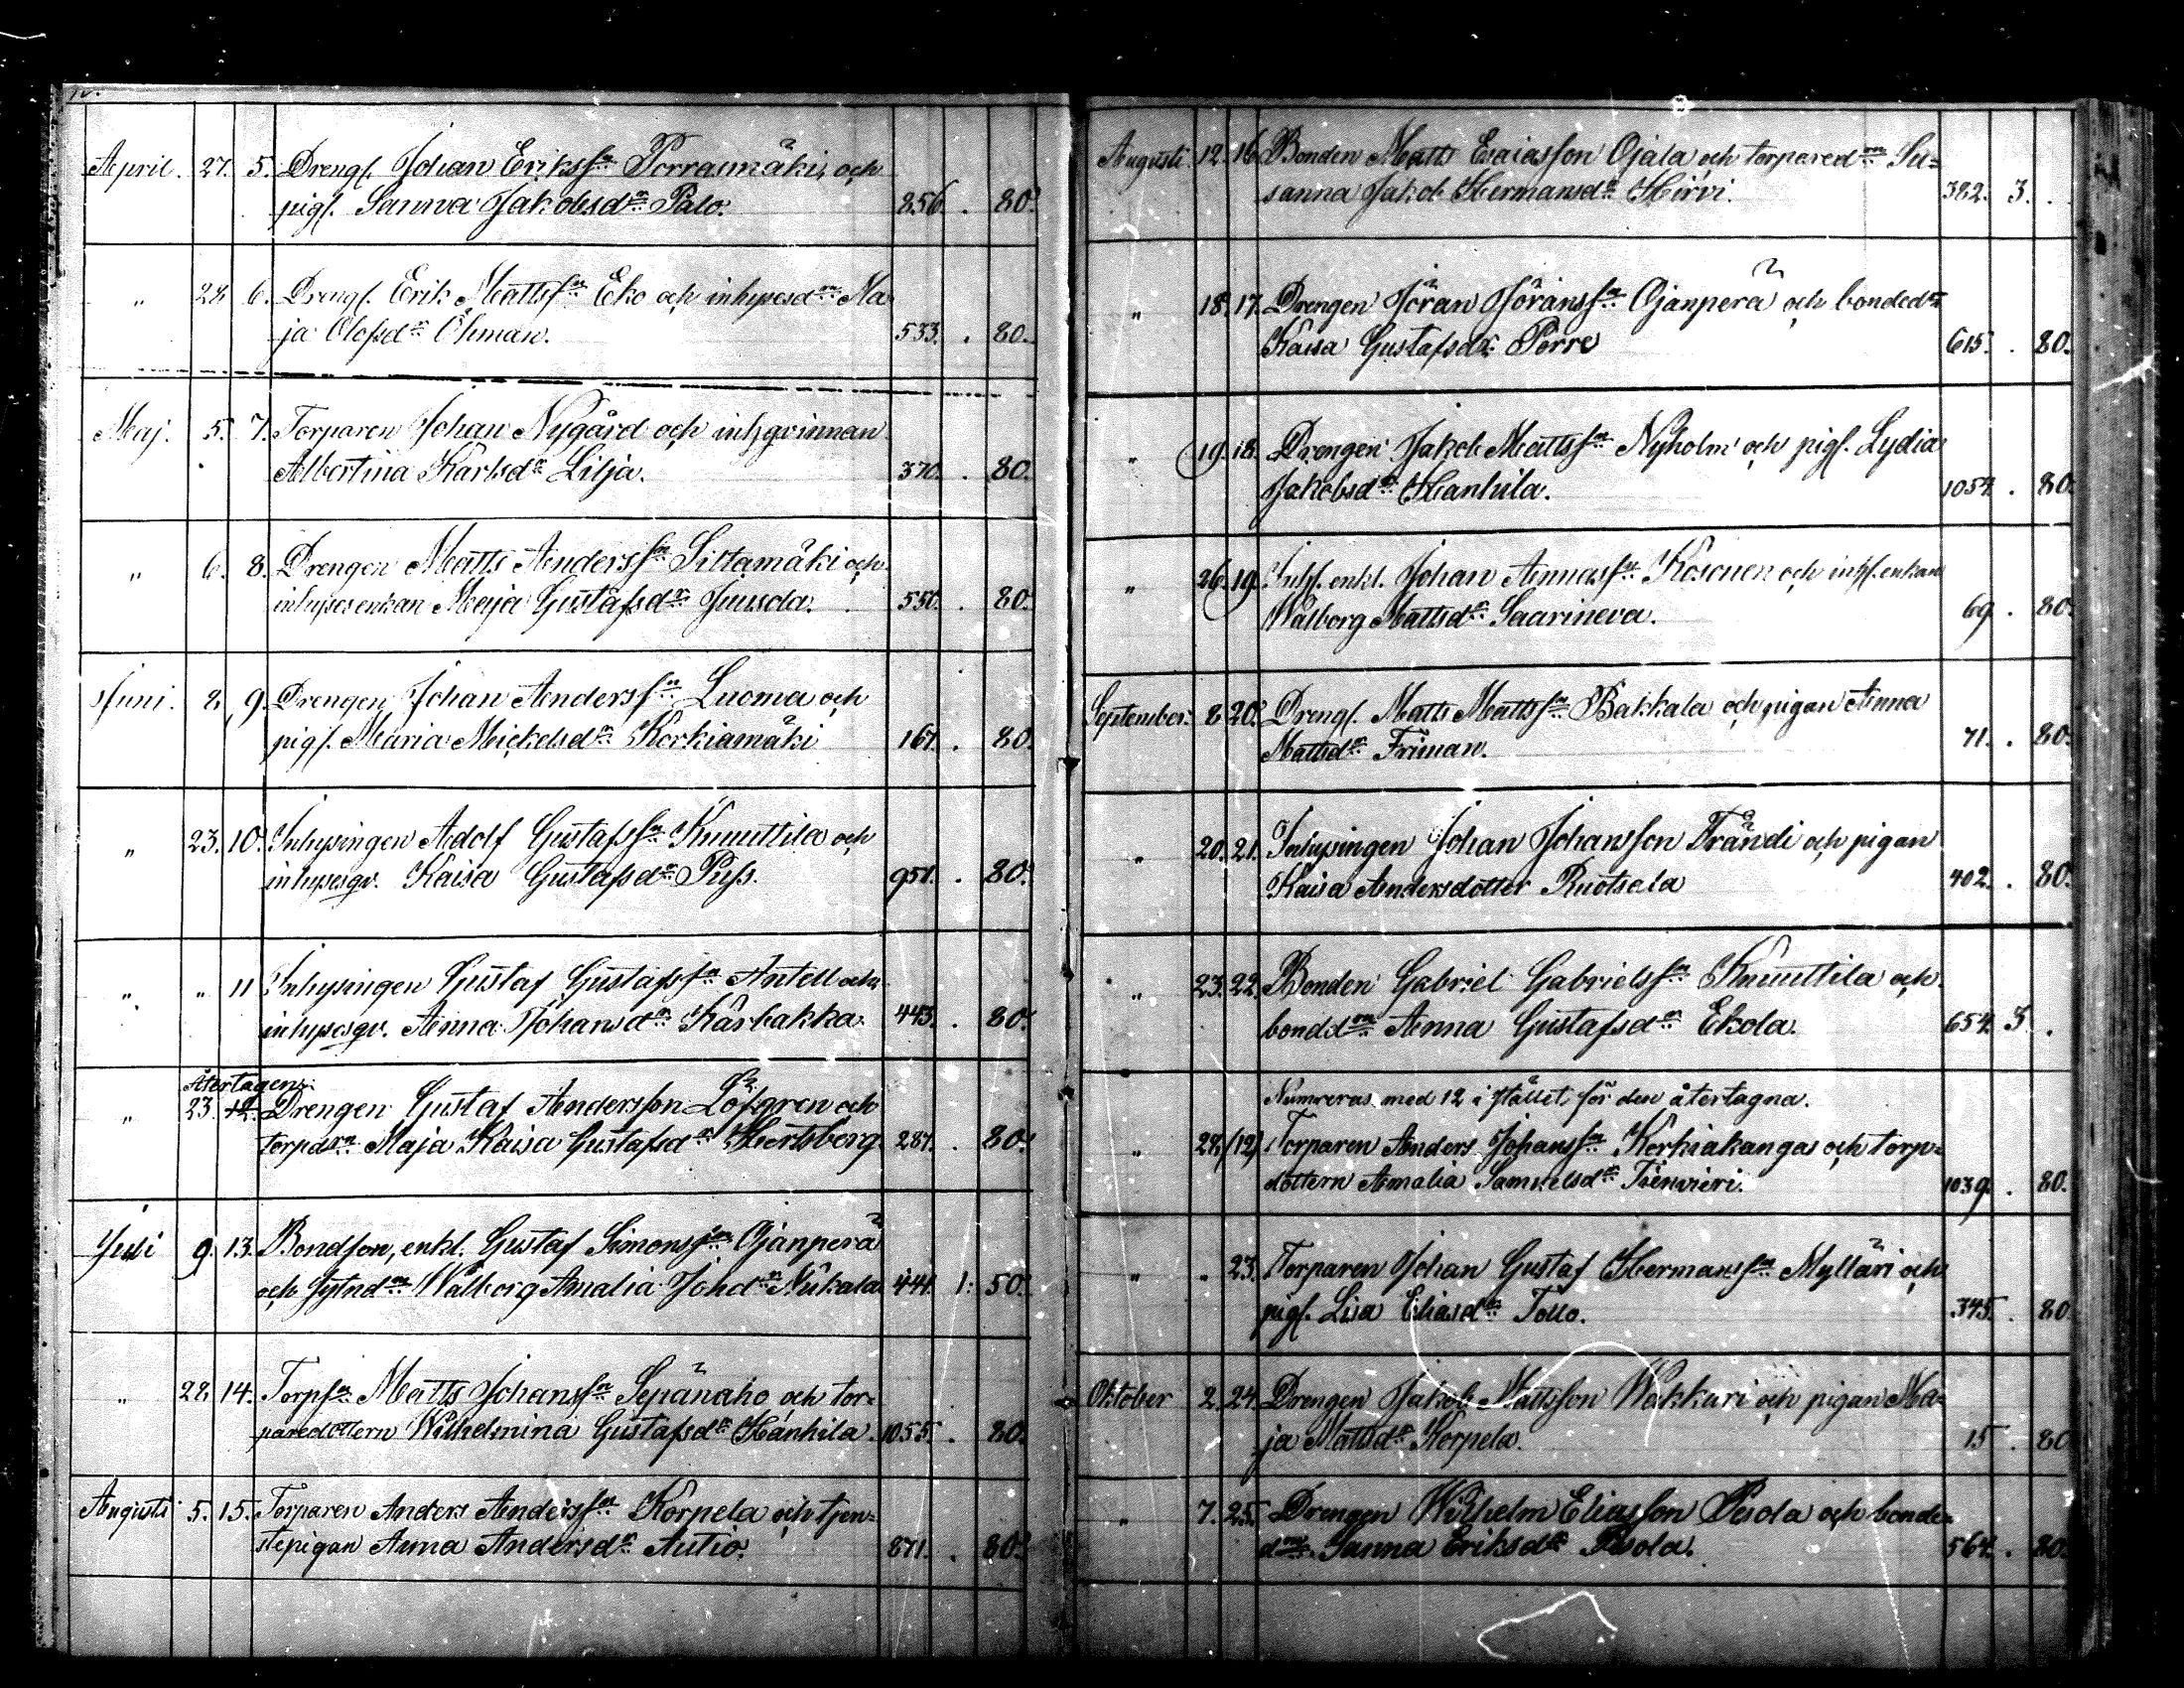 April. 27. 5. Drengf. Johan Erikssn Porrasmäki, och
pigf. Sanna Jakobsdr Palo. 856. . 80.
" 28 6. Drengf. Erik Mattssn Eko och inhysesdrn Ma
ja Olofsdr Öhman. 533. . 80.
Maj. 5. 7. Torparen Johan Nygård och inhqvinnan
Albertina Karlsdr Lilja. 370. . 80.
" 6. 8. Drengen Matts Anderssn Siltamäki och
inhysesenkan Maja Gustafsdr Juusola. 550. . 80.
Juni. 8. 9. Drengen Johan Anderssn Luoma och
pigf. Maria Mickelsdr Korkiamäki 167. . 80.
" 23. 10. Inhysingen Adolf Gustafssn Knuuttila och
inhysesqv. Kaisa Gustafsdr Puss. 951. . 80.
" " 11 Inhysingen Gustaf Gustafssn Antell och
inhysesqv. Anna Johansdr Kärbakka. 443. . 80.
Återtagen.
" 23. 12. Drengen Gustaf Andersson Löfgren och
torpdrn Maja Kaisa Gustafsdr Hertsberg 287. . 80.
Juli 9. 13. Bondson, enkl. Gustaf Simonssn Ojanperä
och sytndrn Walborg Amalia Johdr Nikala 441. 1: 50.
" 28. 14. Torpsn Matts Johanssn Sepänaho och tor=
paredottern Wilhelmina Gustafsdr Hanhila. 1055. . 80.
Augusti 5. 15. Torparen Anders Anderssn Korpela och tjen=
stepigan Anna Andersdr Autio. 871. . 80.
Augusti. 12. 16 Bonden Matts Esaiasson Ojala och torparedrn Su=
sanna Jakob Hermansdr Hirvi. 382. 3. .
" 18. 17. Drengen Jöran Göranssn Ojanperä och bondedr
Kaisa Gustafsdr Porre 615. . 80.
" 19. 18. Drengen Jakob Mattssn Nyholm och pigf. Lydia
Jakobsdr Hanhila. 1054. . 80.
" 26. 19. Inhf. enkl. Johan Annassn Kosonen och inhf. enkan
Walborg Mattsdr Saarineva. 69. . 80.
September. 8 20. Drengf. Matts Mattssn Bakkala och pigan Anna
Mattsdr Friman. 71. . 80.
" 20. 21. Inhysingen Johan Johansson Frändi och pigan
Kaisa Andersdotter Ruotsala 402. . 80.
" 23. 22. Bonden Gabriel Gabrielssn Knuuttila och
bonddrn Anna Gustafsdr Ekola. 654. 3. .
Numreras med 12 i stället för den återtagna.
" 28. (12) Torparen Anders Johanssn Korkiakangas och torp=
dottern Amalia Samuelsdr 1039. . 80.
" " 23. Torparen Johan Gustaf Hermanssn Mylläri och
pigf. Lisa Eliasdr Tollo. 345. . 80
Oktober 2. 24. Drengen Jakob Mattsson Wakkuri och pigan Ma=
ja Mattsdr Korpela. 15 . 80
" 7. 25. Drengen Wilhelm Eliasson Pesola och bonde=
drn Sanna Eriksdr Pesola. 564. . 80.